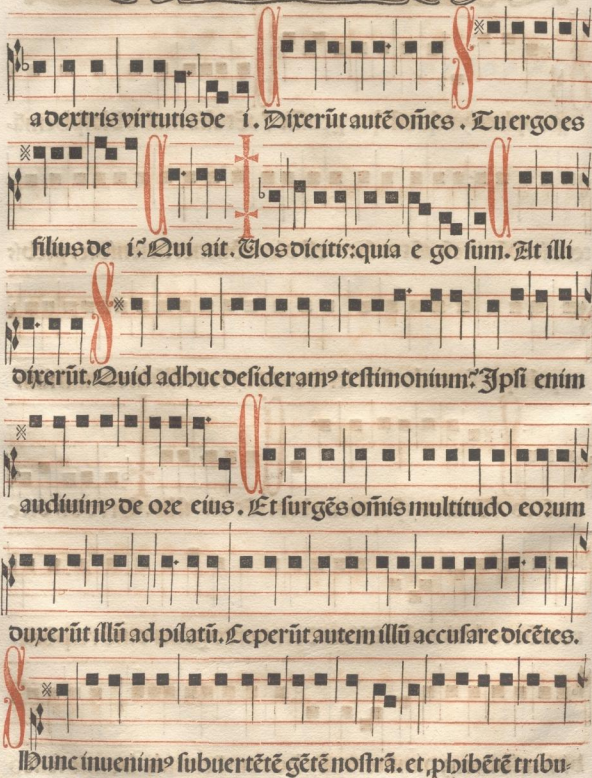 a dextris virtutis de i. Dixerūt autē om̄es. Tu ergo es
filius de i? Qui ait. Uos dicitis: quia e go sum. At illi
dixerūt. Quid adhuc desideramꝰ testimonium? Ipsi enim
audiuimꝰ de ore eius. Et surgēs om̄is multitudo eorum
duxerūt illū ad pilatū. Ceperūt autem illū accusare dicētes.
Hunc inuenimꝰ subuertētē gētē nostrā. et ꝓhibētē tribu-